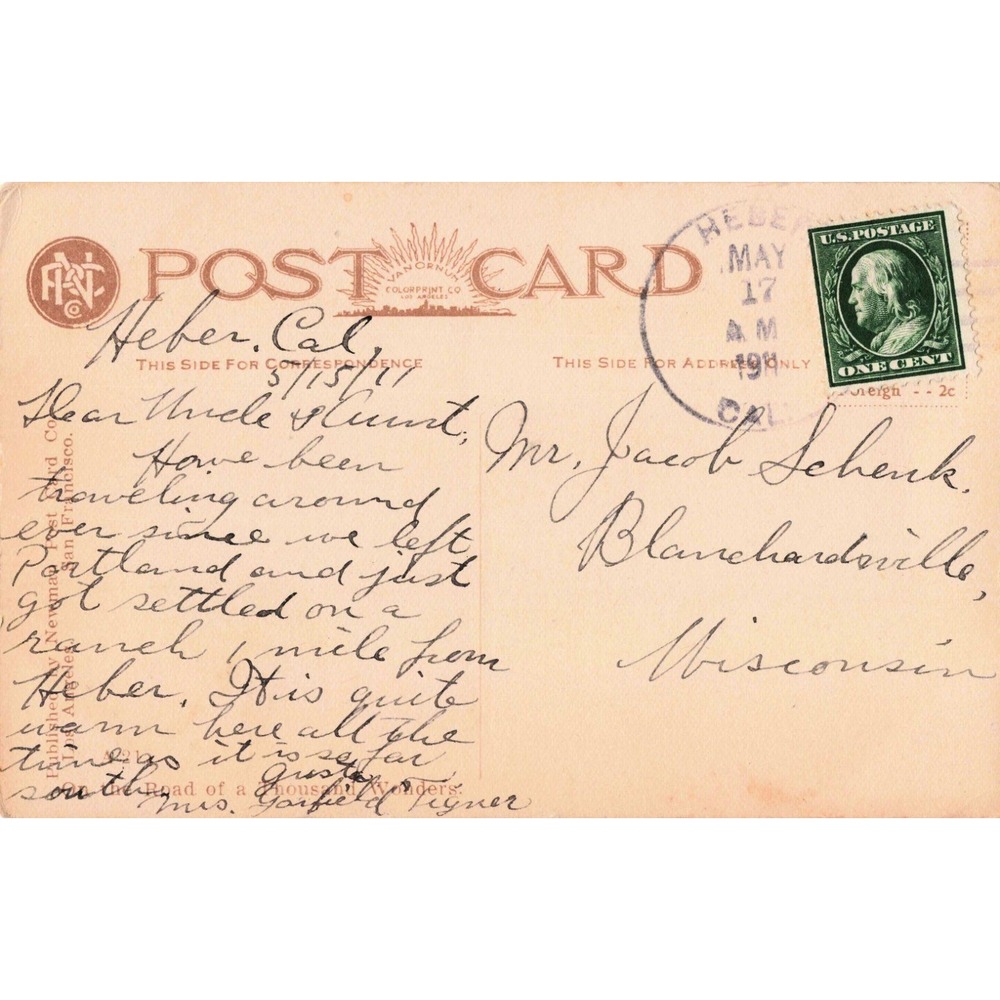 POST CARD
VAN ORNUM
COLORPRINT CO
LOS ANGELES
THIS SIDE FOR CORRESPONDENCE
THIS SIDE FOR ADDRESS ONLY
HEBER
MAY
17
A M
1911
CAL
U.S. POSTAGE
ONE CENT
Foreign - - 2c
Heber, Cal,
5/15/11
Dear Uncle & Aunt,
Have been
traveling around
ever since we left
Portland and just
got settled on a
ranch 1 mile from
Heber. It is quite
warm here all the
time as it is so far
south.
Gusta
Mrs. Garfield Tigner
Mr. Jacob Schenk.
Blanchardsville,
Wisconsin
Published by Newman Post Card Co.
Los Angeles. San Francisco.
On the Road of a Thousand Wonders.